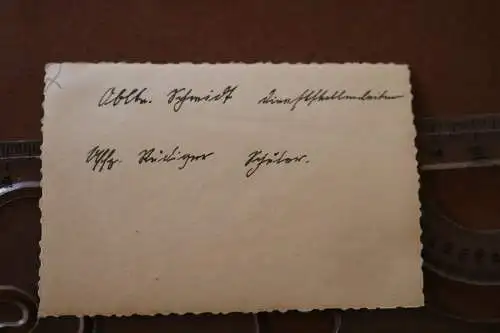 Obltn. Schmidt Dienststellenleiter
Uffz. Rüdiger Schüler.